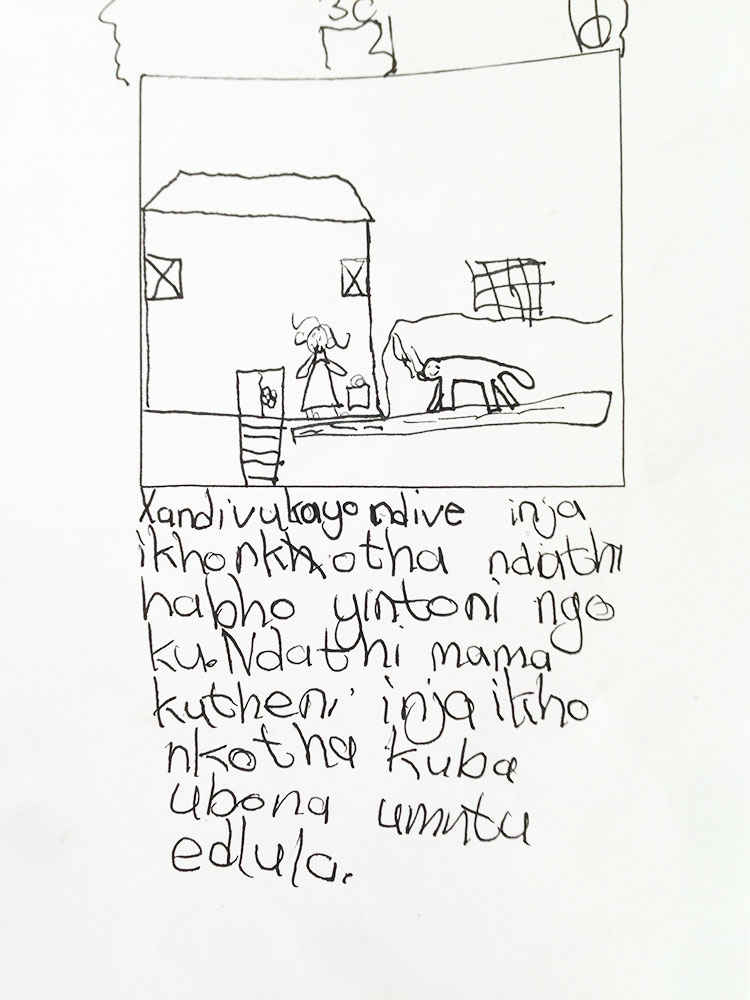 3C
Xandivukayo ndive inja
ikhonkhotha ndathi
habho yintoni ngo
ku. Ndathi mama
kutheni inja ikho
nkotha kuba
ubona umntu
edlula.